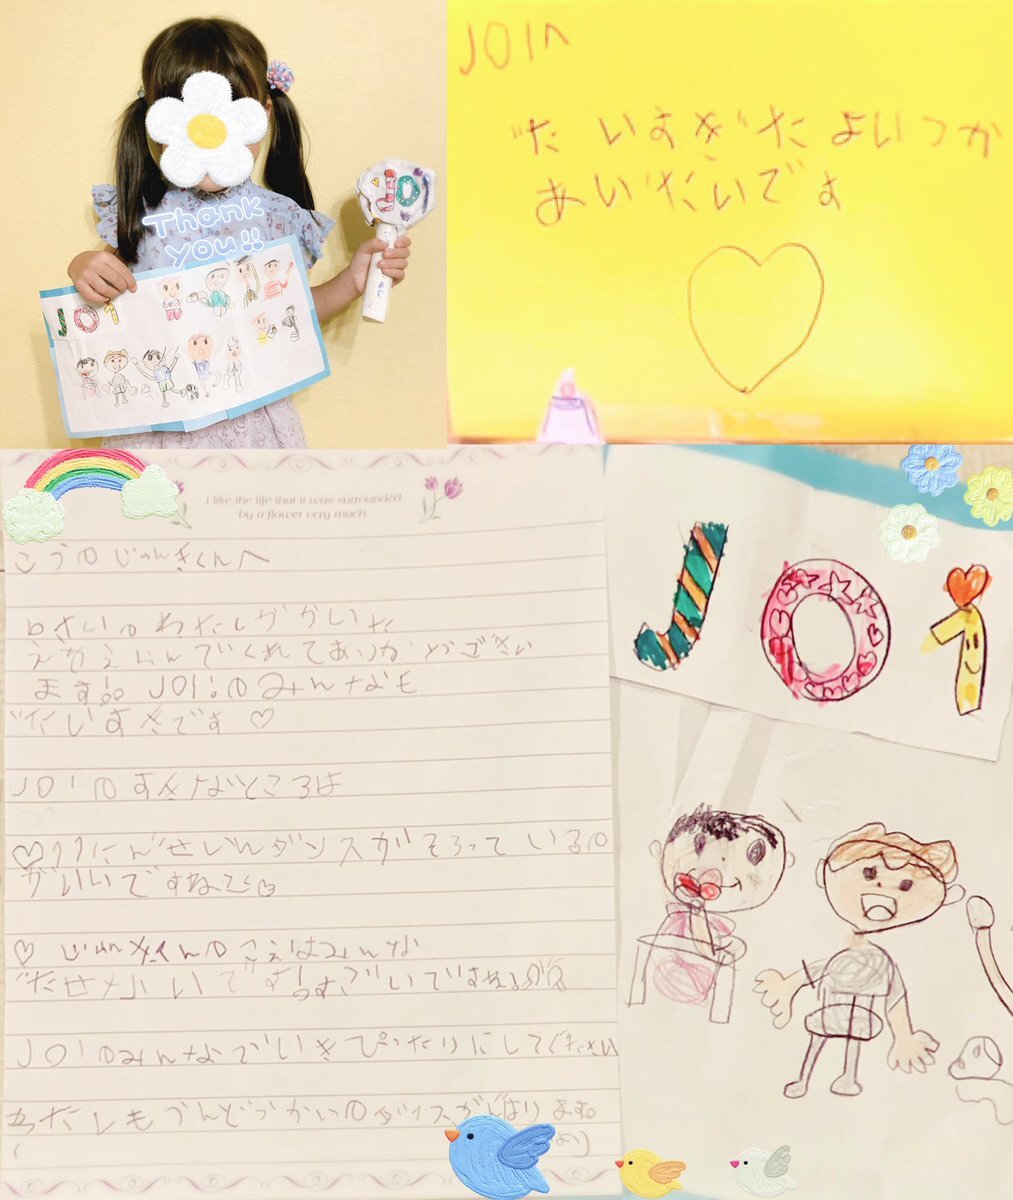 Thank
you!!
JO1
JO1
JO1へ
だいすきだよいつか
あいたいです
I like the life that it was surrounded
by a flower very much.
こうのじゅんきくんへ
6さいのわたしがかいた
えをえらんでくれてありがとうござい
ます!。JO1のみんなも
だいすきです♡
JO1のすきなところは
♡11にんぜいんダンスがそろっているの
がいいですね
♡じゅんきくんのこえはみんな
だせないです!すごいですね
JO1のみんなでいきぴったりにしてください
わたしもうんどうかいのダンスがんばります。
より
JO1